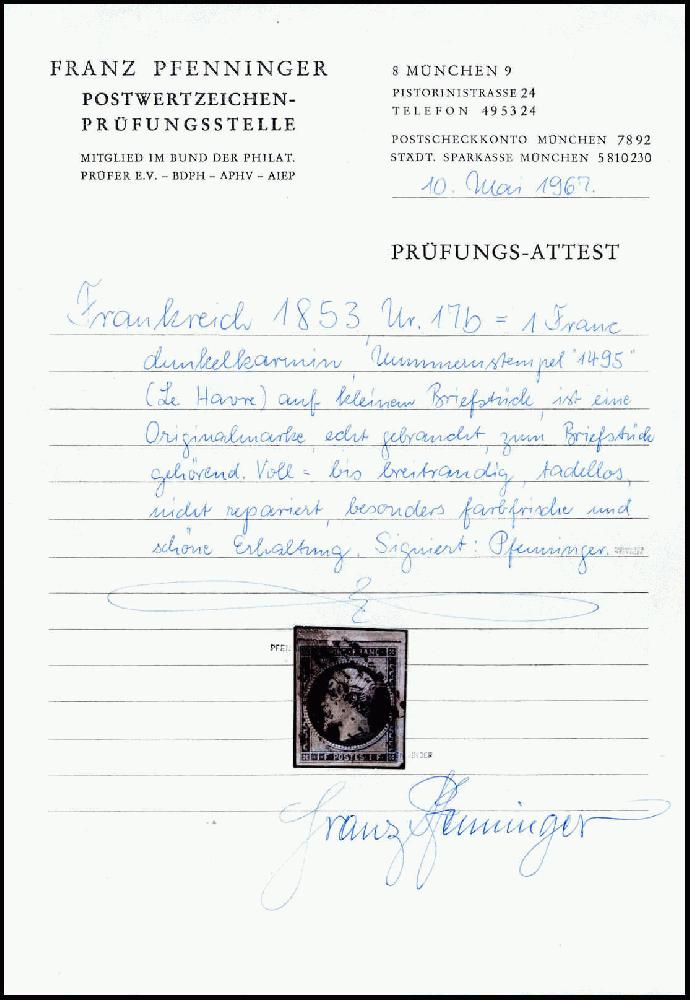 FRANZ PFENNINGER
POSTWERTZEICHEN-
PRÜFUNGSSTELLE
MITGLIED IM BUND DER PHILAT.
PRÜFER E.V. – BDPH – APHV – AIEP
8 MÜNCHEN 9
PISTORINISTRASSE 24
TELEFON 495324
POSTSCHECKKONTO MÜNCHEN 7892
STÄDT. SPARKASSE MÜNCHEN 5810230
10. Mai 1967.
PRÜFUNGS-ATTEST
Frankreich 1853, Nr. 17b = 1 Franc
dunkelkarmin, Nummernstempel "1495"
(Le Havre) auf kleinem Briefstück, ist eine
Originalmarke, echt gebraucht, zum Briefstück
gehörend. Voll- bis breitrandig, tadellos,
nicht repariert, besonders farbfrische und
schöne Erhaltung. Signiert: Pfenninger.
PFE
POSTES 1 F
Franz Pfenninger